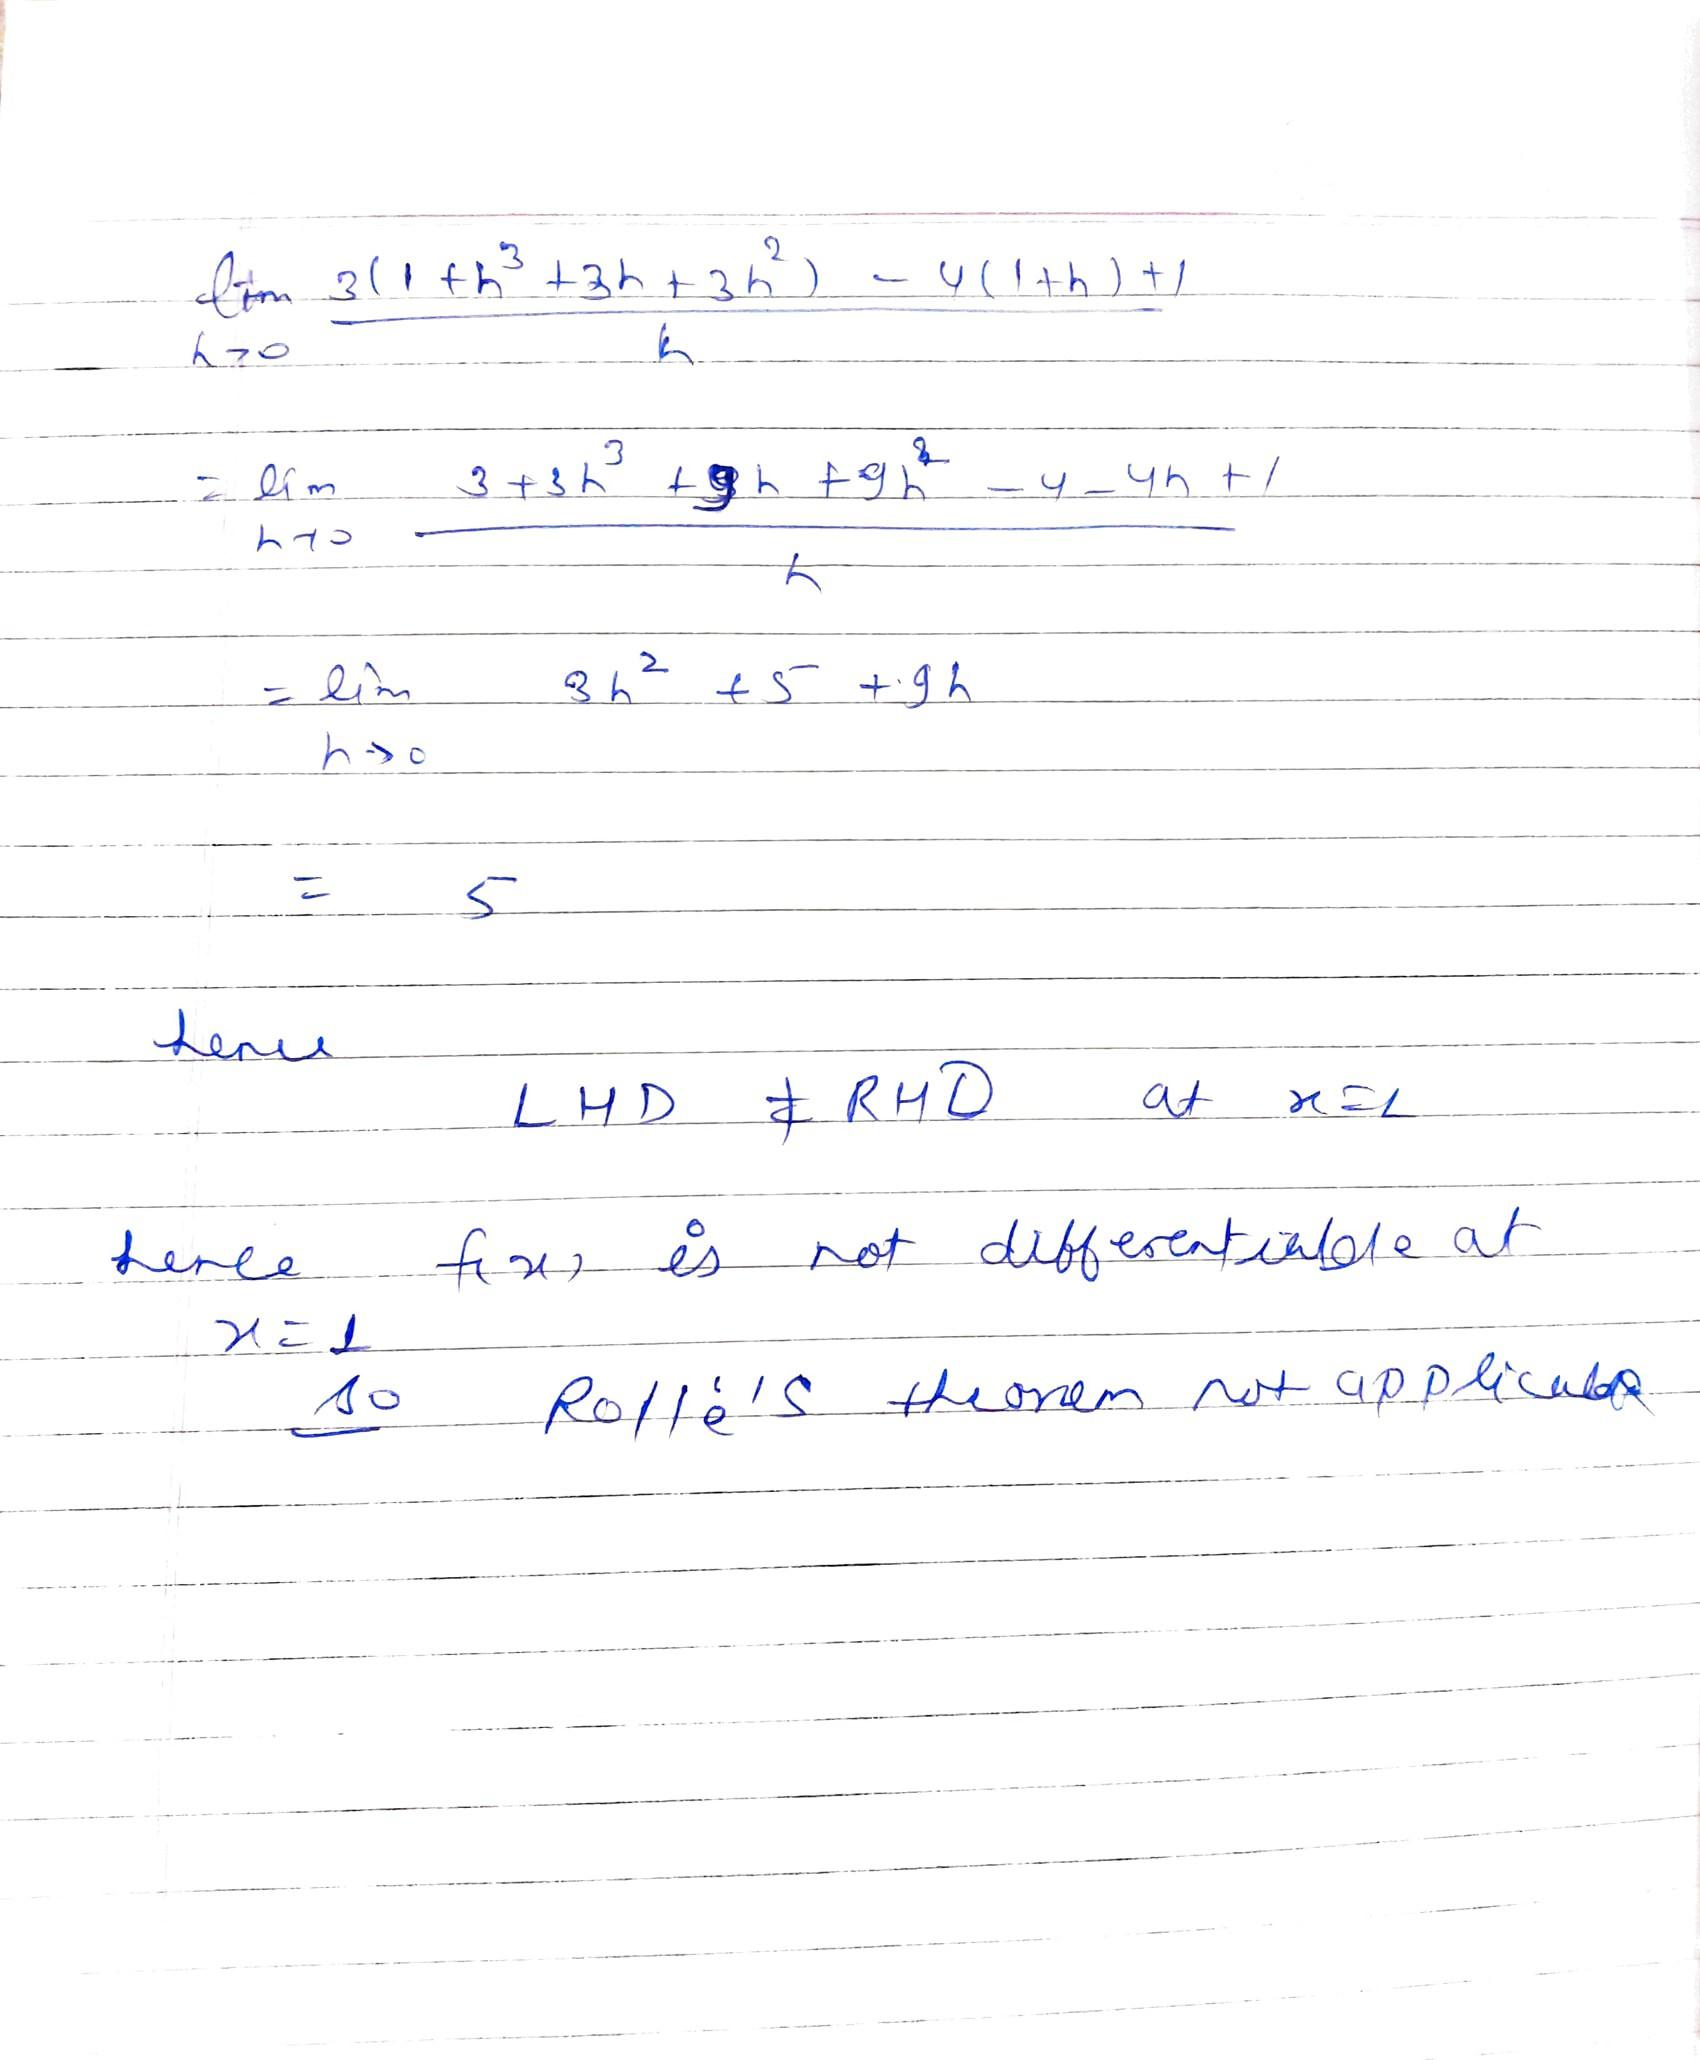 lim 3(1+h³+3h+3h²) - 4(1+h)+1
h→0 h
= lim 3+3h³+9h+9h² -4-4h+1
h→0
h
= lim 3h² +5 +9h
h→0
= 5
hence
LHD ≠ RHD at x=1
hence f(x) is not differentiable at
x=1
so Rolle's theorem not applicable